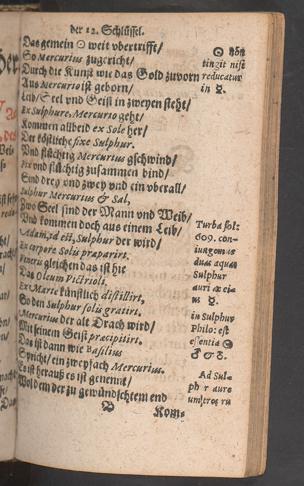 der 12. Schlüssel.
Das gemein ☉ weit vbertrifft/
So Mercurius zugericht/
Durch die Kunst wie das Gold zuvorn
Aus Mercurio ist geborn/
Leib/Seel vnd Geist in zweyen steht/
Ex Sulphure, Mercurio geht/
Kommen allbeid ex Sole her/
Der köstliche fixe Sulphur.
Vnd flüchtig Mercurius gschwind/
Fix vnd flüchtig zusammen bind/
Sind drey vnd zwey vnd ein vberall/
Sulphur Mercurius & Sal,
Zwo Seel sind der Mann vnd Weib/
Vnd kommen doch aus einem Leib/
Adam, id est, Sulphur der wird/
Ex corpore Solis præparirt.
Veneris gleichen das ist hie
Das Oleum Victrioli.
Ex Marte künstlich distillirt,
So den Sulphur solis gratirt.
Mercurius der alt Drach wird/
Mit seinem Geist præcipitirt.
Das ist dann wie Basilius
Spricht/ein zweyfach Mercurius.
Es ist herauß es ist genennt/
Wol dem der zu gewündschtem end
Kom̃s
☉
tingit nisi
reducatur
in ☿.
Turba fol:
609. con-
iungom is
duas aquas
Sulphur
auri
☿.
in Sulphur
Philo: est
essentia ☉
♂ & ♂.
Ad Sul-
ph r aure